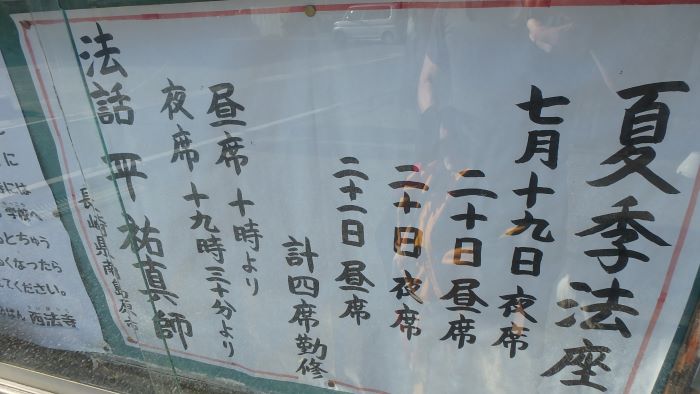 夏季法座
七月十九日 夜席
二十日 昼席
二十日 夜席
二十一日 昼席
計四席勤修
昼席 十時より
夜席 十九時三十分より
法話 平 祐真師
長崎県南島原市
に
には
学校へ
とちゅう
くなったら
ください。
西法寺